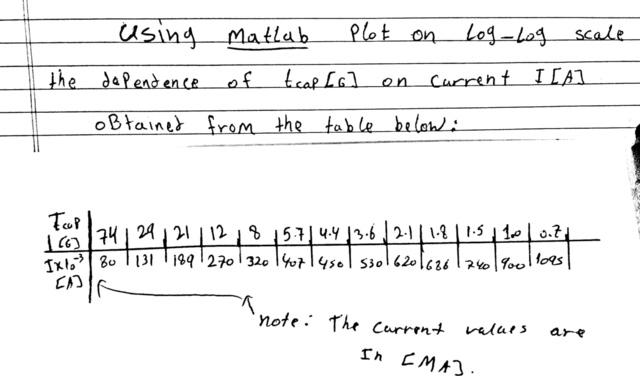 using Matlab Plot on Log-Log scale
the dependence of tcap [G] on current I [A]
oBtained from the table below:
Tcap [G] 74 29 21 12 8 5.7 4.4 3.6 2.1 1.8 1.5 1.0 0.7
I×10⁻³ [A] 80 131 189 270 320 407 450 530 620 686 740 900 1095
note: The current values are
In [MA].